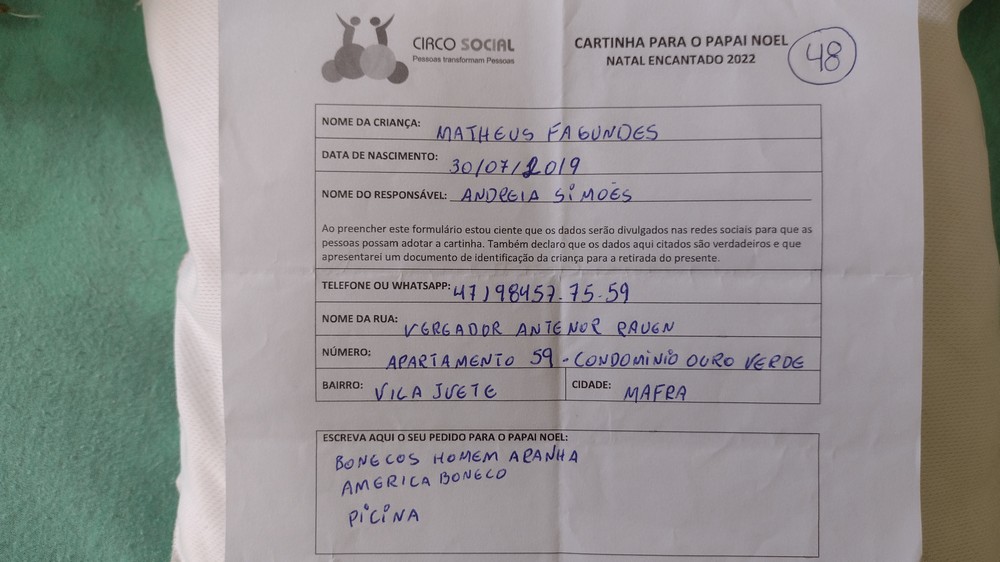 CIRCO SOCIAL
Pessoas transformam Pessoas
CARTINHA PARA O PAPAI NOEL
NATAL ENCANTADO 2022
48
NOME DA CRIANÇA: MATHEUS FAGUNDES
DATA DE NASCIMENTO: 30/07/2019
NOME DO RESPONSÁVEL: ANDREIA SIMOES
Ao preencher este formulário estou ciente que os dados serão divulgados nas redes sociais para que as
pessoas possam adotar a cartinha. Também declaro que os dados aqui citados são verdadeiros e que
apresentarei um documento de identificação da criança para a retirada do presente.
TELEFONE OU WHATSAPP: 47)98457.75-59
NOME DA RUA: VEREADOR ANTENOR RAUEN
NÚMERO: APARTAMENTO 59 - CONDOMINIO OURO VERDE
BAIRRO: VILA IVETE CIDADE: MAFRA
ESCREVA AQUI O SEU PEDIDO PARA O PAPAI NOEL:
BONECOS HOMEM ARANHA
AMERICA BONECO
PICINA